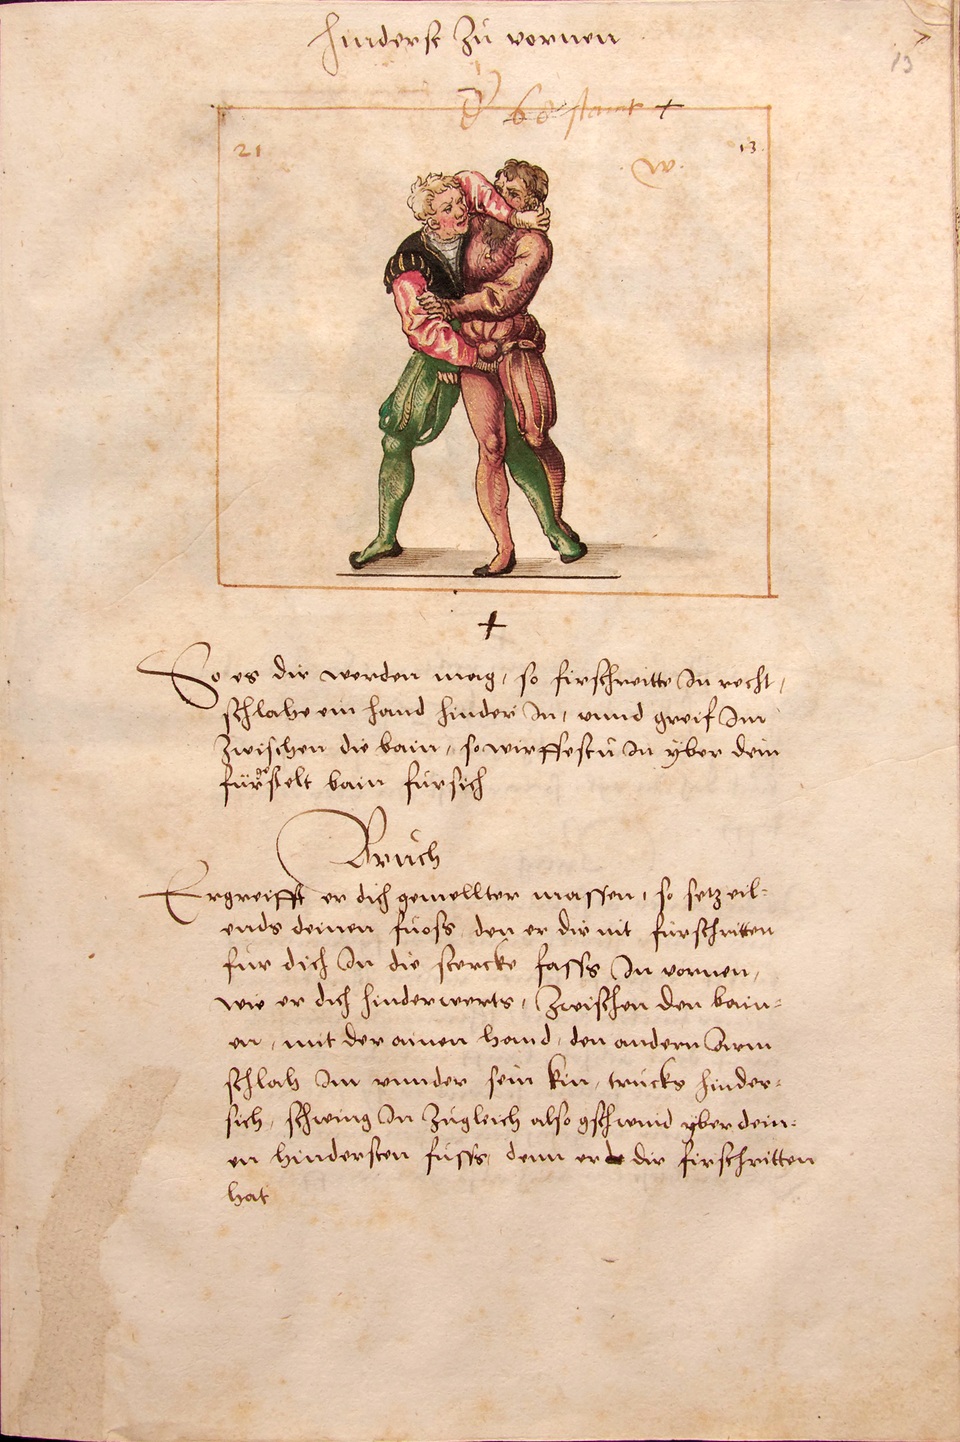 hinderst Zu vornen
13
60 stamt +
21
13.
w.
+
So es dir werden mag, so firschreitte In recht,
schlahe ein hand hinder In, vnnd greif Im
Zwischen die bain, so wirffestu In yber dein
fürgeselt bain fürsich
Bruch
Ergreifft er dich gemellter massen, so setz eil-
ends deinen fuoss den er dir nit fürschritten
für dich In die stercke fasss In vornen,
wie er dich hinderwerts, Zwischen den bain-
en, mit der ainen hand, den andern Arm
schlah Im vnnder sein kin, trucks hinder-
sich, schwing In Zugleich also gschwind yber dein-
en hindersten fusss, denn er dir firschritten
hat